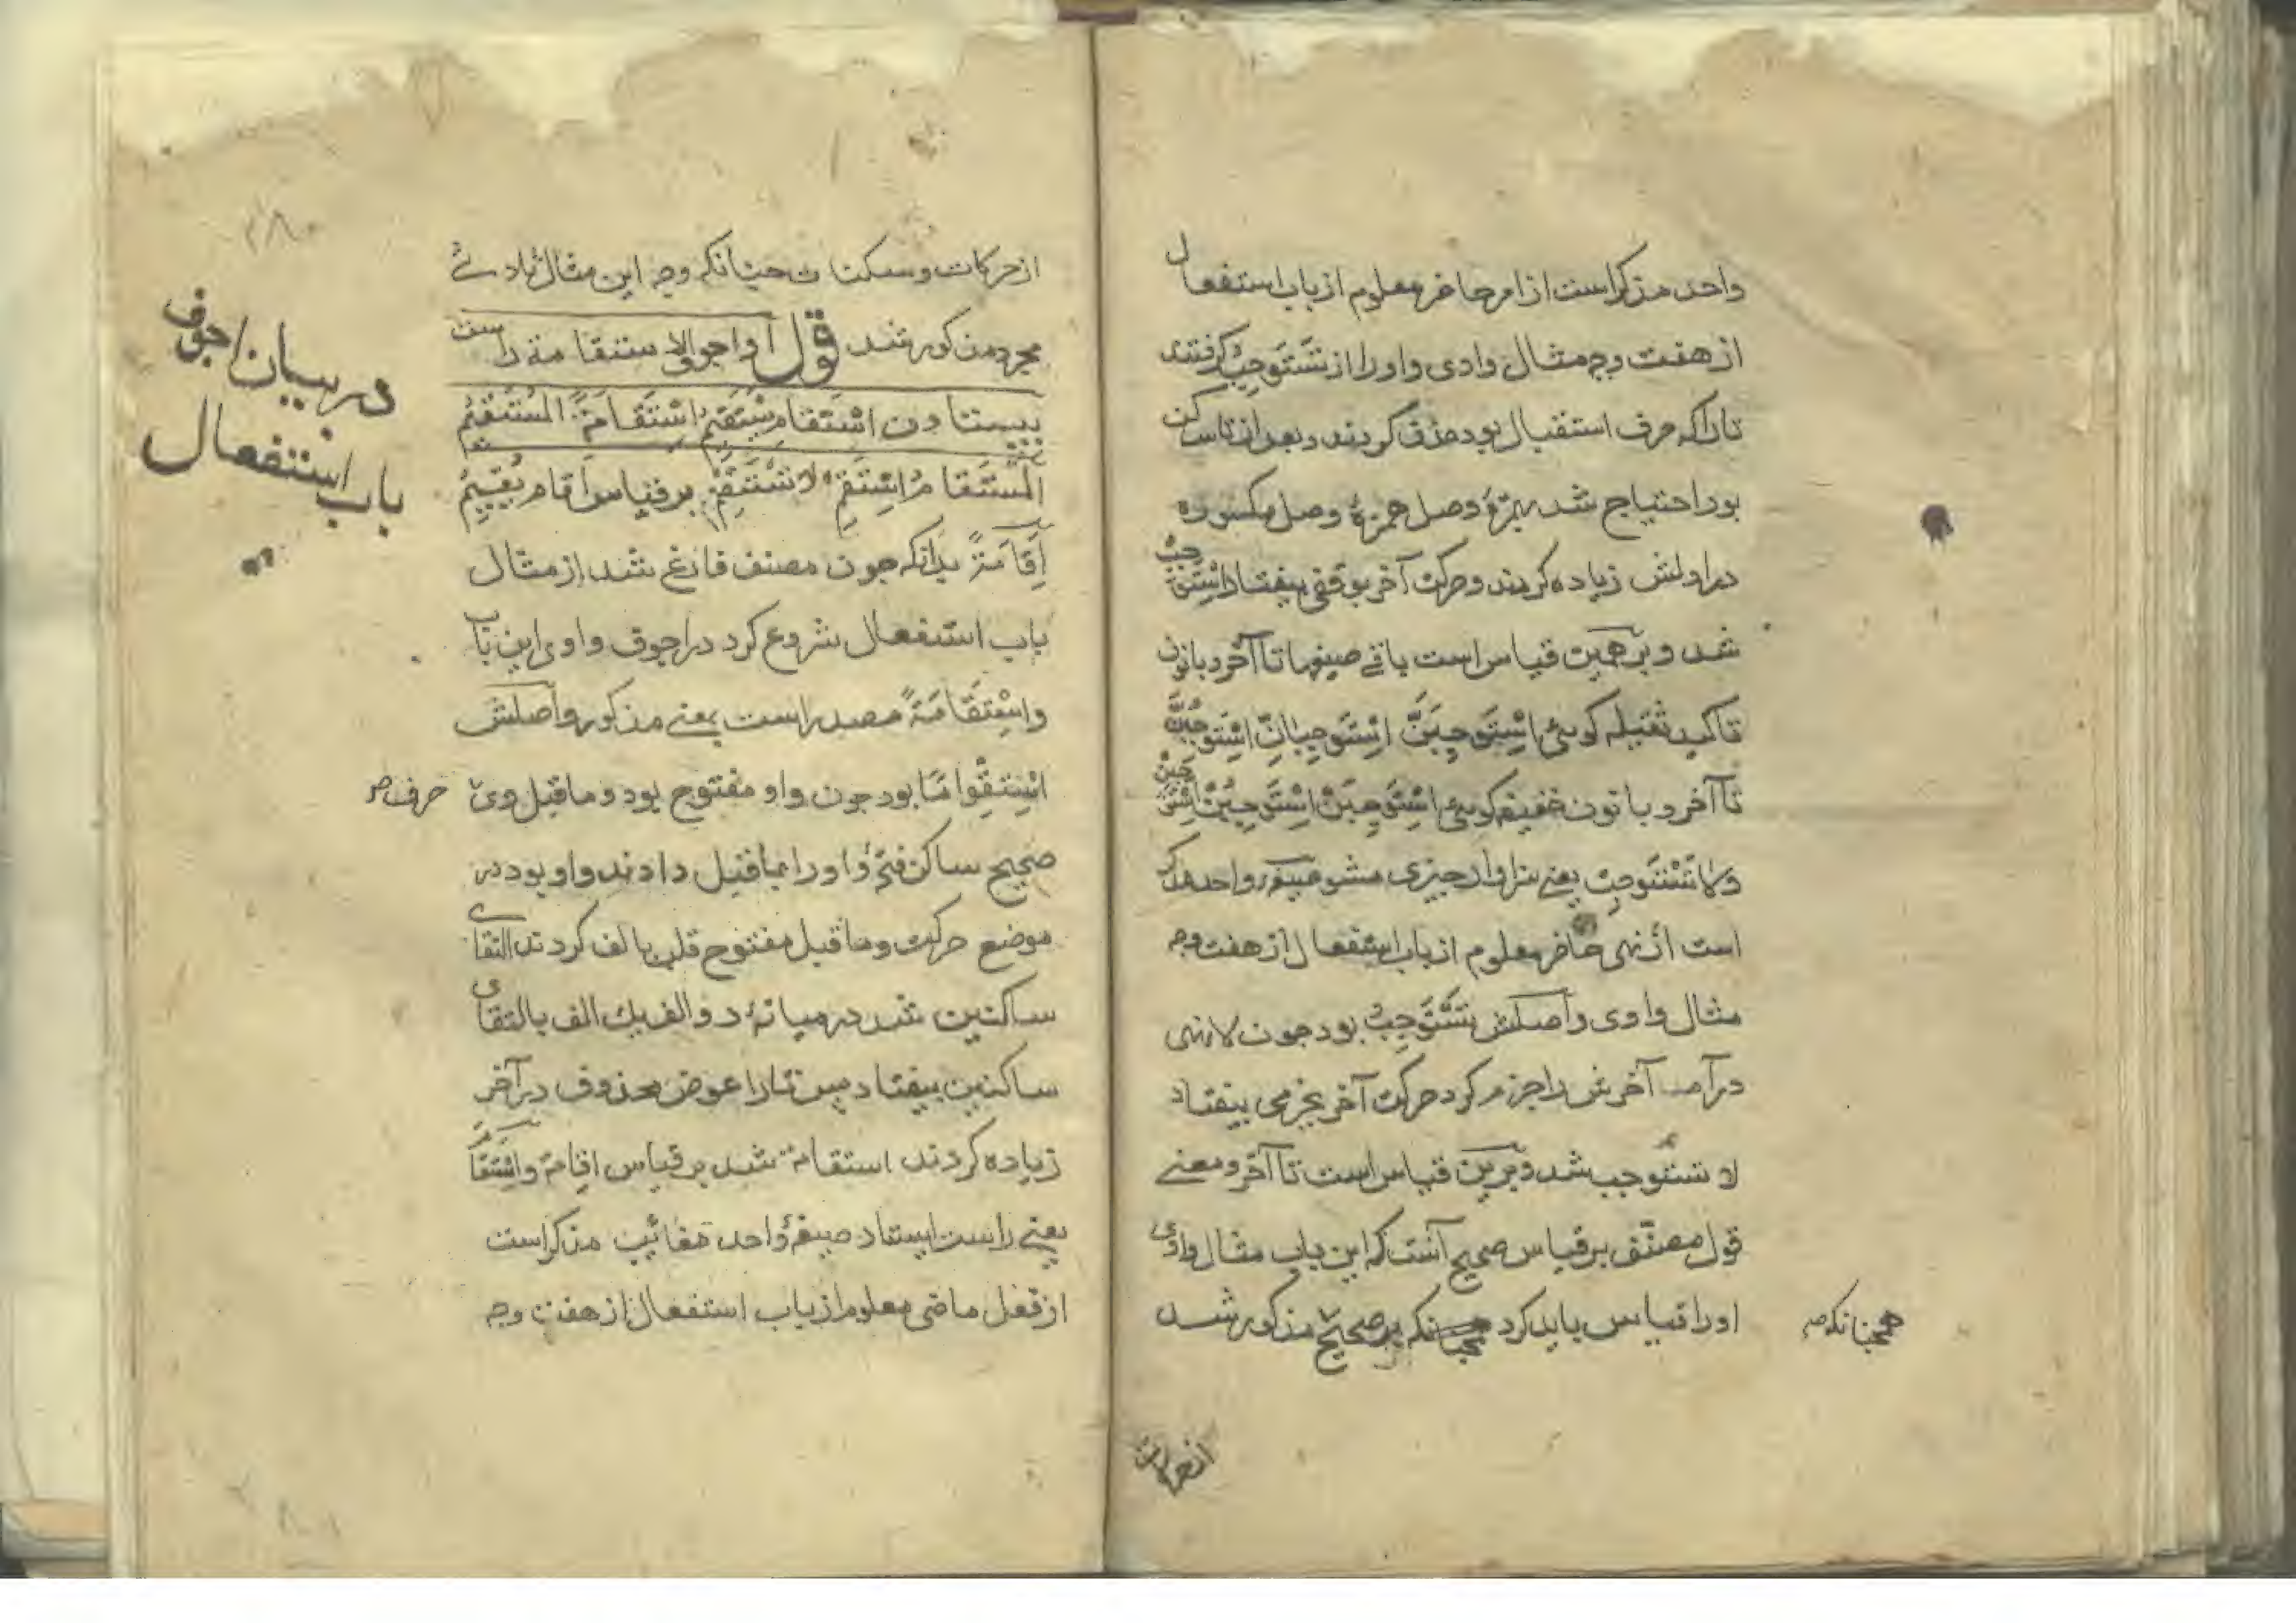 واحد مذکر است از امر حاضر معلوم از باب استفعال
از هفت وجه مثال وادی واو را از تَسْتَوجِبُ گرفتند
تا را که حرف استقبال بود حذف کردند و بعد از تا ساکن
بود احتیاج شد بهمزهٔ وصل همزهٔ وصل مکسوره
در اولش زیاده کردند و حرکت آخر بوقفی بیفتاد اِسْتَوجِبْ
شد و بر همین قیاس است باقی صیغها تا آخر و با نون
تاکید ثقیله گوئی اِسْتَوجِبَنَّ اِسْتَوجِبانِّ اِسْتَوجِبُنَّ
تا آخر و با نون خفیفه گوئی اِسْتَوجِبَنْ اِسْتَوجِبُنْ اِسْتَوجِبِنْ
و لا تَسْتَوجِبْ یعنی سزاوار چیزی مشو صیغهٔ واحد مذکر
است از نهی حاضر معلوم از باب استفعال از هفت وجه
مثال واوی واصلش تَسْتَوجِبُ بود چون لا نهی
درآمد آخرش را جزم کرد حرکت آخر بجزمی بیفتاد
لا تستوجب شد و برین قیاس است تا آخر و معنی
قول مصنّف بر قیاس صحیح آنست که این باب مثال واوی
او را قیاس باید کرد همچنانکه بر صحیح مذکور شد
همچنانکه صح
از حرکات
از حرکات و سکنات چنانکه وجه این مثال ثلاثی
مجرد مذکور شد قول اجوف الاستقامة راست
بیستادن اِسْتَقامَ یَسْتَقِیمُ اِسْتِقامَةً المُسْتَقِیمُ
المُسْتَقامُ اِسْتَقِمْ لا تَسْتَقِمْ بر قیاس اَقامَ یُقِیمُ
اِقامَةً بدانکه چون مصنف فارغ شد از مثال
باب استفعال شروع کرد در اجوف واوی این باب
و اِسْتِقامَةً مصدر است بمعنی مذکور واصلش
اِسْتِقْوامًا بود چون واو مفتوح بود و ماقبل وی
حرف صح
صحیح ساکن فتحهٔ واو را بماقبل دادند واو بود در
موضع حرکت و ماقبل مفتوح قلب بالف کردند التقای
ساکنین شد در میانهٔ دو الف یک الف بالتقای
ساکنین بیفتاد پس تا را عوض محذوف در آخر
زیاده کردند استقامة شد بر قیاس اقامة و اِسْتَقامَ
یعنی راست ایستاد صیغهٔ واحد مغائب مذکر است
از فعل ماضی معلوم از باب استفعال از هفت وجه
در بیان اجوف
باب استفعال